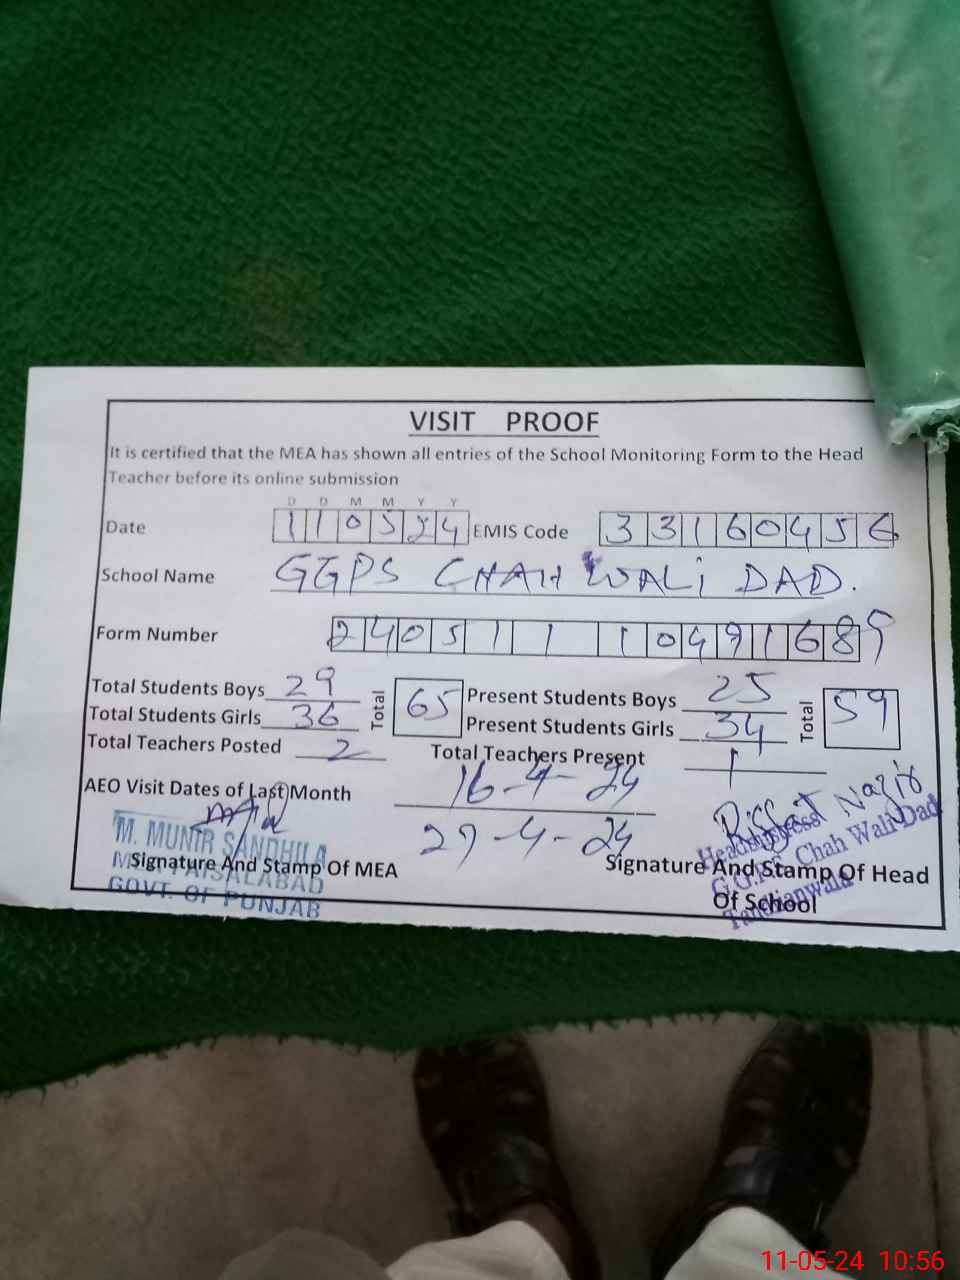 VISIT PROOF
It is certified that the MEA has shown all entries of the School Monitoring Form to the Head
Teacher before its online submission
D D M M Y Y
Date 110524 EMIS Code 33160456
School Name GGPS CHAH WALI DAD.
Form Number 24051110491689
Total Students Boys 29 Total 65 Present Students Boys 25 Total 59
Total Students Girls 36 Present Students Girls 34
Total Teachers Posted 2 Total Teachers Present 1
AEO Visit Dates of Last Month 16-4-24
29-4-24
Riffat Nazir
M. MUNIR SANDHILA
MEA FAISALABAD
GOVT. OF PUNJAB
Signature And Stamp Of MEA
Headmistress
G.G.P.S. Chah Wali Dad
Tandlianwala
Signature And Stamp Of Head
Of School
11-05-24 10:56